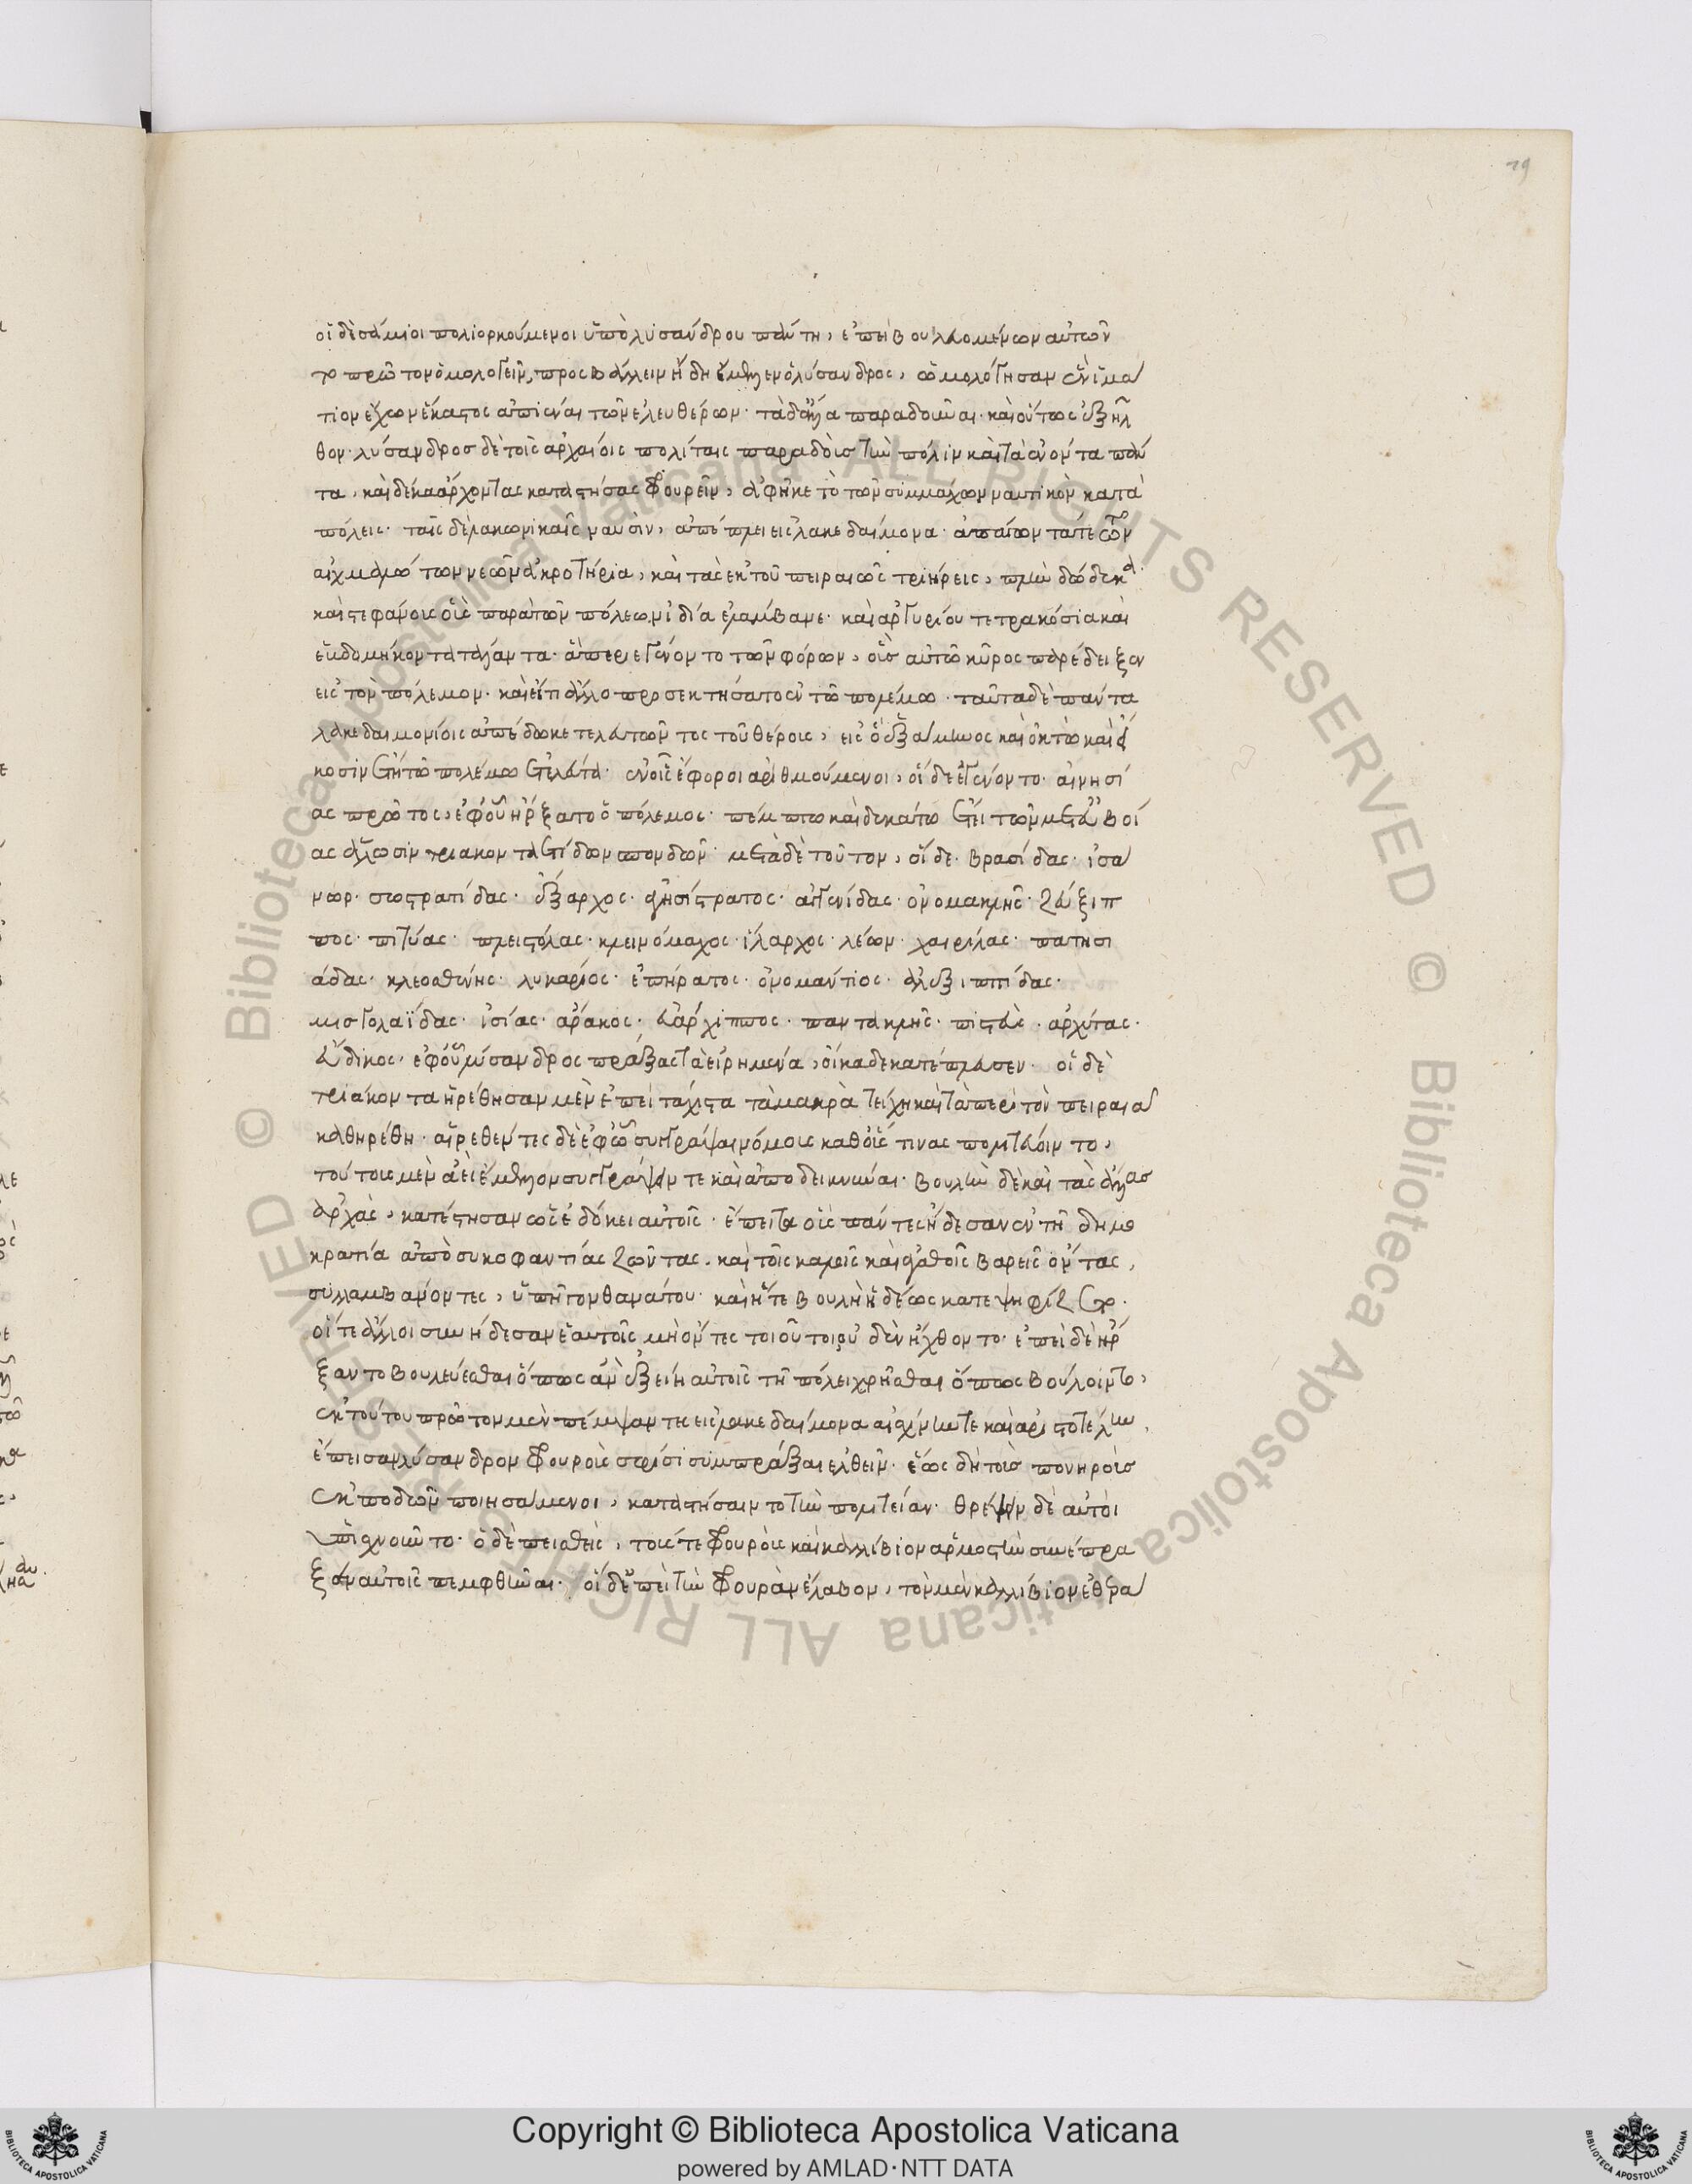 29
οἱ δὲ σάμιοι πολιορκούμενοι ὑπὸ λυσάνδρου πάντη, ἐπεὶ βουλομένων αὐτῶν
το πρῶτον ὁμολογεῖν, προσβάλλειν ἤδη ἔμελλεν ὁ λύσανδρος, ὡμολόγησαν ἓν ἱμά
τιον ἔχων ἕκαστος ἀπιέναι τῶν ἐλευθέρων· τὰ δ' ἄλλα παραδοῦναι· καὶ οὕτως ἐξῆλ
θον· λύσανδρος δὲ τοῖς ἀρχαίοις πολίταις παραδοὺς τὴν πόλιν καὶ τὰ ἐνόντα πάν
τα, καὶ δέκα ἄρχοντας καταστήσας φρουρεῖν, ἀφῆκε τὸ τῶν συμμάχων ναυτικὸν κατὰ
πόλεις· ταῖς δὲ λακωνικαῖς ναυσὶν, ἀπέπλει εἰς λακεδαίμονα· ἀπάγων τά τε τῶν
αἰχμαλώτων νεῶν ἀκρωτήρια, καὶ τὰς ἐκ τοῦ πειραιῶς τριήρεις, πλὴν δώδεκα·
καὶ στεφάνους οὓς παρὰ τῶν πόλεων ἰδία ἐλάμβανε· καὶ ἀργυρίου τετρακόσια καὶ
ἑβδομήκοντα τάλαντα· ἃ περιεγένοντο τῶν φόρων, οὓς αὐτῶ κῦρος παρέδειξεν
εἰς τὸν πόλεμον· καὶ εἴ τι ἄλλο προσεκτήσατο ἐν τῶ πολέμω· ταῦτα δὲ πάντα
λακεδαιμονίοις ἀπέδωκε τελευτῶντος τοῦ θέρους, εἰς ὃ ἑξάμηνος καὶ ὀκτὼ καὶ εἴ
κοσιν ἔτη τῶ πολέμω ἐτελεύτα· ἐν οἷς ἔφοροι ἀριθμούμενοι, οἵδε ἐγένοντο· αἰνησί
ας πρῶτος, ἐφ' οὗ ἤρξατο ὁ πόλεμος· πέμπτω καὶ δεκάτω ἔτει τῶν μετ' εὐβοί
ας ἅλωσιν τριακονταετίδων σπονδῶν· μετὰ δὲ τοῦτον, οἵδε· βρασίδας· ἰσά
νωρ· σωστρατίδας· ἔξαρχος· ἀγησίστρατος· ἀγγενίδας· ὀνομακλῆς· ζεύξιπ
πος· πιτύας· πλειστόλας· κλεινόμαχος· ἴλαρχος· λέων· χαιρίλας· πατησι
άδας· κλεοσθένης· λυκάριος· ἐπήρατος· ὀνομάντιος· ἀλεξιππίδας·
μισγολαΐδας· ἰσίας· ἄρακος· εὐάρχιππος· παντακλῆς· πιτύας· ἀρχύτας·
εὔδικος· ἐφ' οὗ λύσανδρος πράξας τὰ εἰρημένα, οἴκαδε κατέπλευσεν· οἱ δὲ
τριάκοντα ᾑρέθησαν μὲν ἐπεὶ τάχιστα τὰ μακρὰ τείχη καὶ τὰ περὶ τὸν πειραιᾶ
καθηρέθη· αἱρεθέντες δὲ ἐφ' ᾧ συγγράψαι νόμους καθ' οὕς τινας πολιτεύοιντο,
τούτους μὲν ἀεὶ ἔμελλον συγγράφειν τε καὶ ἀποδεικνύναι· βουλὴν δὲ καὶ τὰς ἄλλας
ἀρχὰς, κατέστησαν ὡς ἐδόκει αὐτοῖς· ἔπειτα οὓς πάντες ᾔδεσαν ἐν τῆ δημο
κρατία ἀπὸ συκοφαντίας ζῶντας, καὶ τοῖς καλοῖς κἀγαθοῖς βαρεῖς ὄντας,
συλλαμβάνοντες, ὑπῆγον θανάτου· καὶ ἥ τε βουλὴ ἡδέως κατεψηφίζετο·
οἵ τε ἄλλοι συνήδεσαν ἑαυτοῖς μὴ ὄντες τοιοῦτοι, οὐδὲν ἤχθοντο· ἐπεὶ δὲ ἤρ
ξαντο βουλεύεσθαι ὅπως ἂν ἐξείη αὐτοῖς τῆ πόλει χρῆσθαι ὅπως βούλοιντο,
ἐκ τούτου πρῶτον μὲν πέμψαντες εἰς λακεδαίμονα αἰσχίνην τε καὶ ἀριστοτέλην,
ἔπεισαν λύσανδρον φρουροὺς σφίσι συμπρᾶξαι ἐλθεῖν· ἕως δὴ τοὺς πονηροὺς
ἐκποδὼν ποιησάμενοι, καταστήσαιντο τὴν πολιτείαν· θρέψειν δὲ αὐτοὶ
ὑπισχνοῦντο· ὁ δὲ πεισθεὶς, τούς τε φρουροὺς καὶ καλλίβιον ἁρμοστὴν συνέπρα
ξεν αὐτοῖς πεμφθῆναι· οἱ δ' ἐπεὶ τὴν φρουρὰν ἔλαβον, τὸν μὲν καλλίβιον ἐθερά
Copyright © Biblioteca Apostolica Vaticana
powered by AMLAD·NTT DATA
© Biblioteca Apostolica Vaticana ALL RIGHTS RESERVED
© Biblioteca Apostolica Vaticana ALL RIGHTS RESERVED